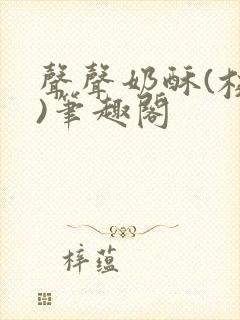 聲聲奶酥(校
)筆趣閣
梓蘊